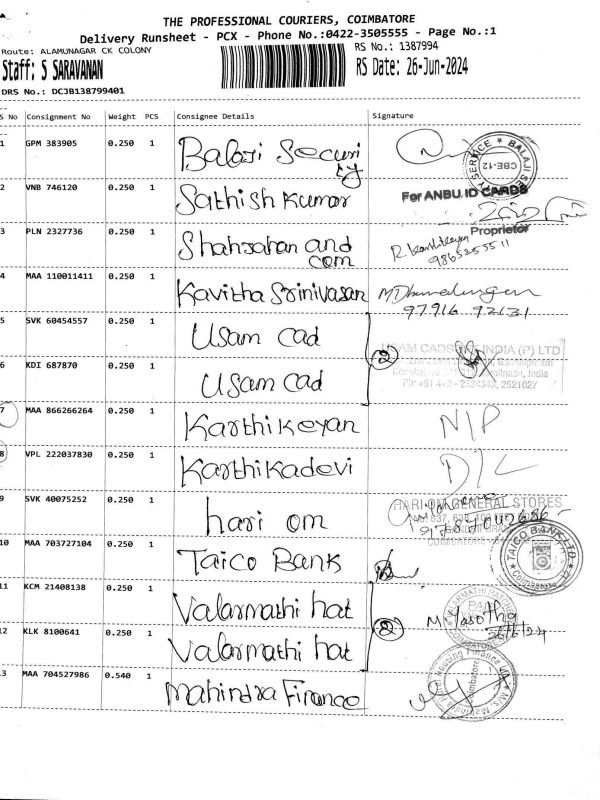 THE PROFESSIONAL COURIERS, COIMBATORE
Delivery Runsheet - PCX - Phone No.:0422-3505555 - Page No.:1
Route: ALAMUNAGAR CK COLONY
RS No.: 1387994
Staff: S SARAVANAN
RS Date: 26-Jun-2024
DRS No.: DCJB138799401
S No Consignment No Weight PCS Consignee Details Signature
1 GPM 383905 0.250 1 Balaji Securi
ty
BALAJI SERVICE CBE-12
2 VNB 746120 0.250 1 Sathish Kumar
For ANBU ID CARDS
Proprietor
3 PLN 2327736 0.250 1 Shahjahan and
com
R. Karthikeyan
9865255511
4 MAA 110011411 0.250 1 Kavitha Srinivasan
97916 92131
5 SVK 60454557 0.250 1 Usam Cad
2
USAM CADSOFT INDIA (P) LTD
Tamilnadu, India
Ph: +91 422 - 2524343, 2521027
6 KDI 687870 0.250 1 Usam Cad
7 MAA 866266264 0.250 1 Karthikeyan N/P
8 VPL 222037830 0.250 1 Karthikadevi D/L
9 SVK 40075252 0.250 1 hari om
HARI OM GENERAL STORES
COIMBATORE
10 MAA 703727104 0.250 1 Taico Bank
TAICO BANK LTD
Coimbatore
11 KCM 21408138 0.250 1 Valarmathi hat
2
M. Yasotha
26/6/24
12 KLK 8100641 0.250 1 Valarmathi hat
13 MAA 704527986 0.540 1 Mahindra Finance
Housing Finance
Coimbatore